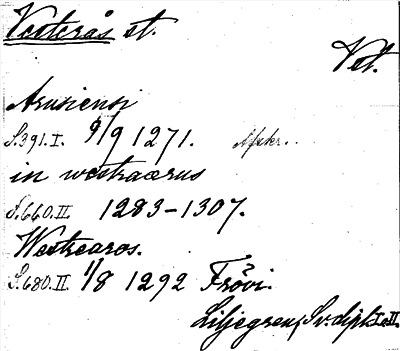 Vesterås st.
Vstl.
Arusiensi
S.391.I. 9/9 1271. Afskr..
in westraarus
S.660.II. 1283-1307.
Westraaros.
S.680.II. 1/8 1292 Frövi.
Liljegren, Sv. dipl. I o. II.